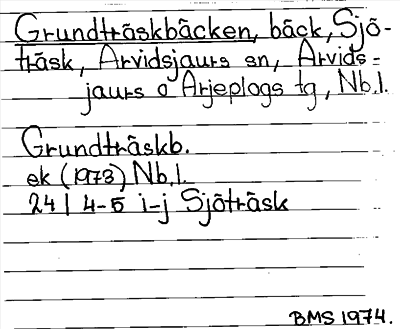 Grundträskbäcken, bäck, Sjö-
träsk, Arvidsjaurs sn, Arvids=
jaurs o Arjeplogs tg, Nb.l.
Grundträskb.
ek (1973) Nb.l.
24 I 4-5 i-j Sjöträsk
BMS 1974.